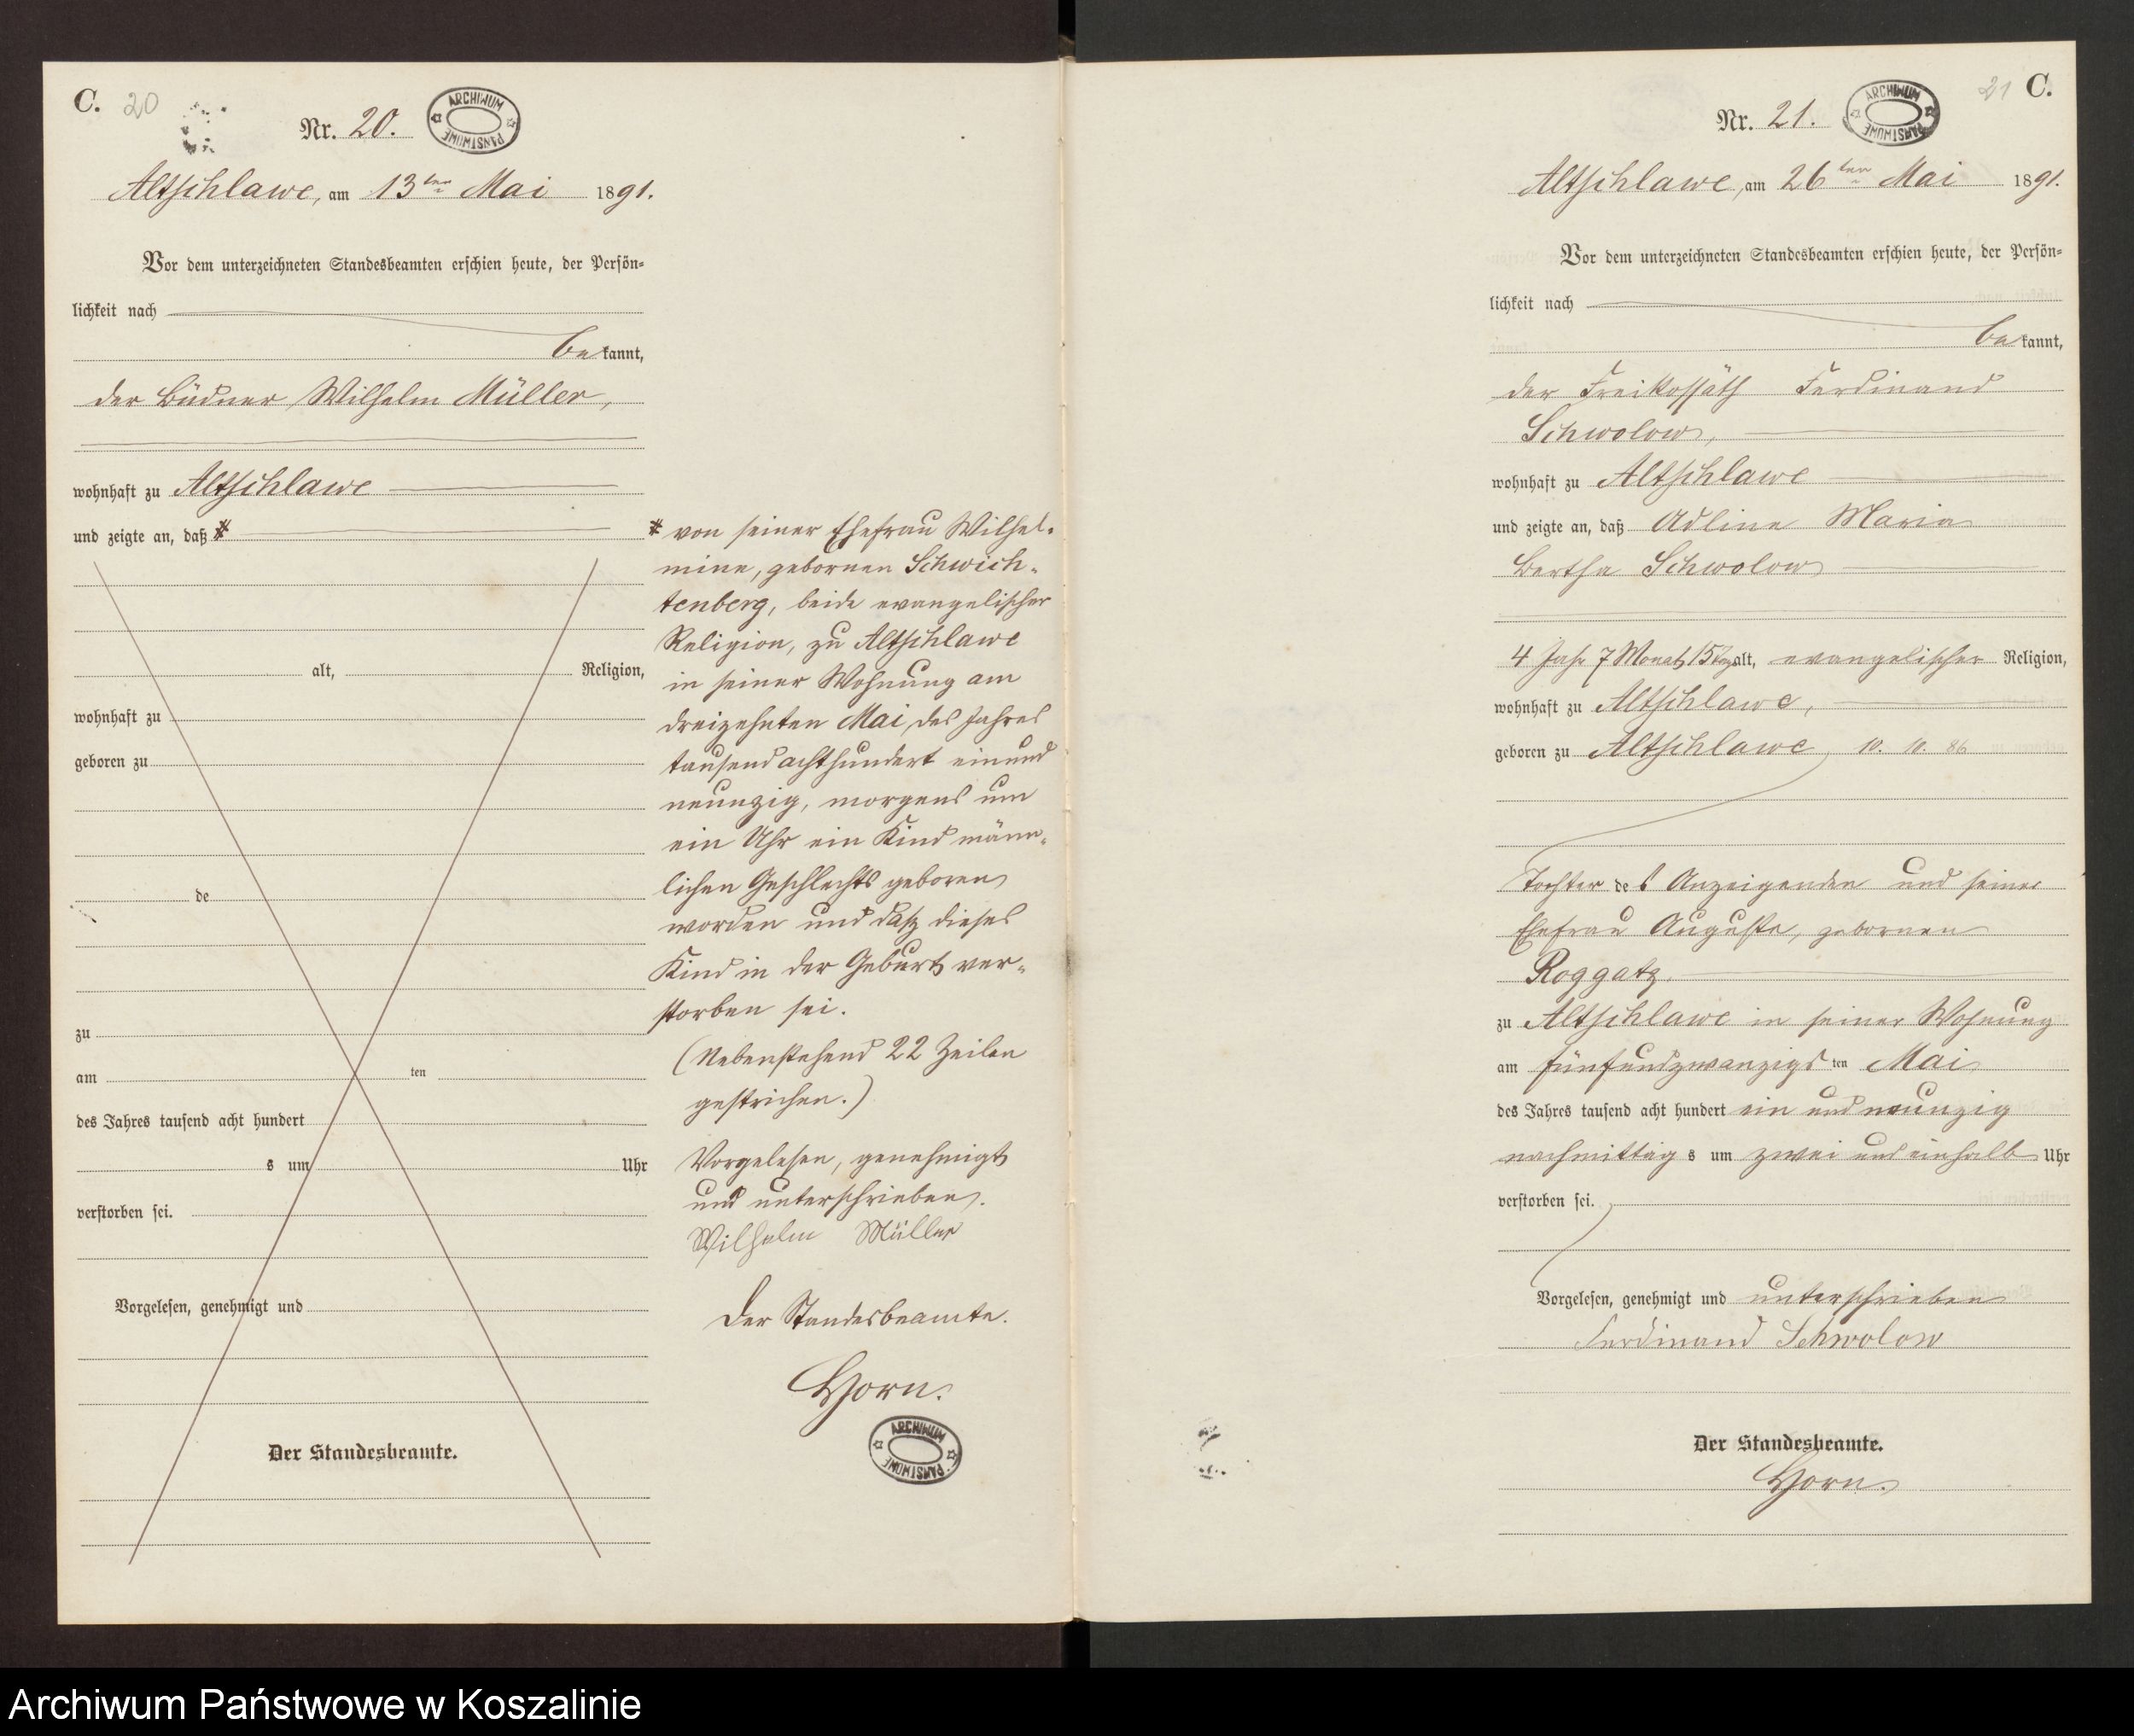 C. 20
Nr. 20.
ARCHIWUM PAŃSTWOWE
Altschlawe, am 13ten Mai 1891.
Vor dem unterzeichneten Standesbeamten erschien heute, der Persön-
lichkeit nach
bekannt,
der Büdner Wilhelm Müller,
wohnhaft zu Altschlawe
und zeigte an, daß #
alt, Religion,
wohnhaft zu
geboren zu
de
zu
am ten
des Jahres tausend acht hundert
s um Uhr
verstorben sei.
Vorgelesen, genehmigt und
Der Standesbeamte.
# von seiner Ehefrau Wilhel-
mine, gebornen Schwich-
tenberg, beide evangelischer
Religion, zu Altschlawe
in seiner Wohnung am
dreizehnten Mai des Jahres
tausend achthundert einund
neunzig, morgens um
ein Uhr ein Kind männ-
lichen Geschlechts geboren
worden und daß dieses
Kind in der Geburt ver-
storben sei.
(Nebenstehend 22 Zeilen
gestrichen.)
Vorgelesen, genehmigt
und unterschrieben.
Wilhelm Müller
Der Standesbeamte.
Horn.
ARCHIWUM PAŃSTWOWE
21 C.
Nr. 21.
ARCHIWUM PAŃSTWOWE
Altschlawe, am 26ten Mai 1891.
Vor dem unterzeichneten Standesbeamten erschien heute, der Persön-
lichkeit nach
bekannt,
der Freikossäth Ferdinand
Schwolow,
wohnhaft zu Altschlawe
und zeigte an, daß Adline Maria
Bertha Schwolow
4 Jahr 7 Monat 15 Tage alt, evangelischer Religion,
wohnhaft zu Altschlawe,
geboren zu Altschlawe, 10. 10. 86
Tochter des Anzeigenden und seiner
Ehefrau Auguste, gebornen
Roggatz
zu Altschlawe in seiner Wohnung
am fünfundzwanzigsten Mai
des Jahres tausend acht hundert ein und neunzig
nachmittags um zwei und einhalb Uhr
verstorben sei.
Vorgelesen, genehmigt und unterschrieben
Ferdinand Schwolow
Der Standesbeamte.
Horn.
Archiwum Państwowe w Koszalinie